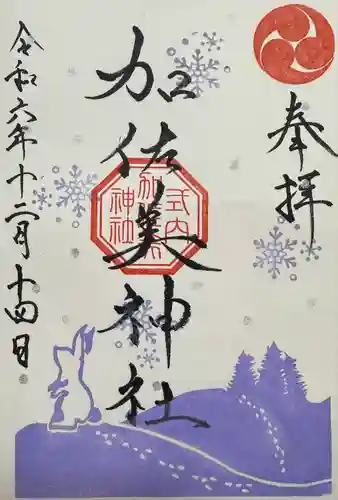 奉拝
加佐美神社
式内
加佐美
神社
令和六年十二月十四日